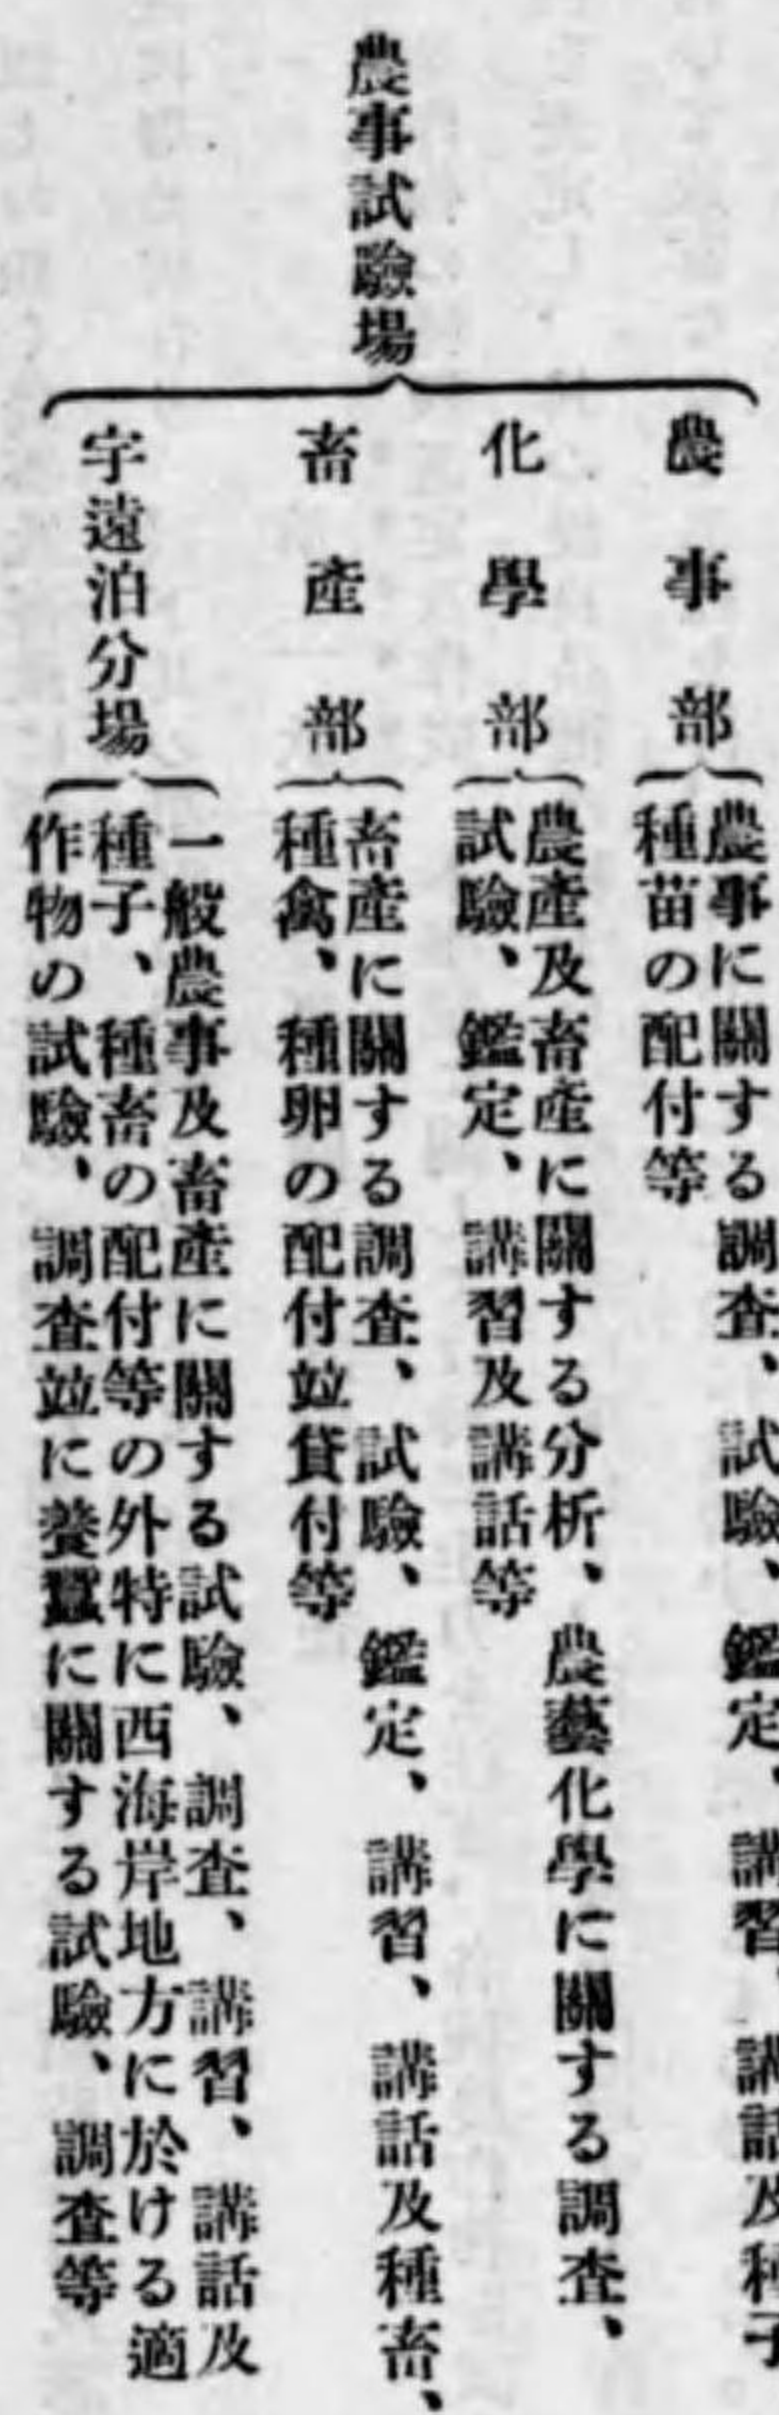 農事試驗場
農事部
農事に關する調査、試驗、鑑定、講習、講話及種子
種苗の配付等
化學部
農產及畜產に關する分析、農藝化學に關する調査、
試驗、鑑定、講習及講話等
畜產部
畜產に關する調査、試驗、鑑定、講習、講話及種畜、
種禽、種卵の配付竝貸付等
宇遠泊分場
一般農事及畜產に關する試驗、調査、講習、講話及
種子、種畜の配付等の外特に西海岸地方に於ける適
作物の試驗、調査竝に養蠶に關する試驗、調査等